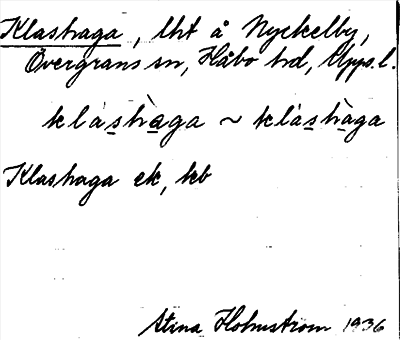 Klashaga, lht å Nyckelby,
Övergrans sn, Håbo hd, Upps. l.
klàshàga ~ klàshàga
Klashaga ek, kb
Stina Holmström 1936